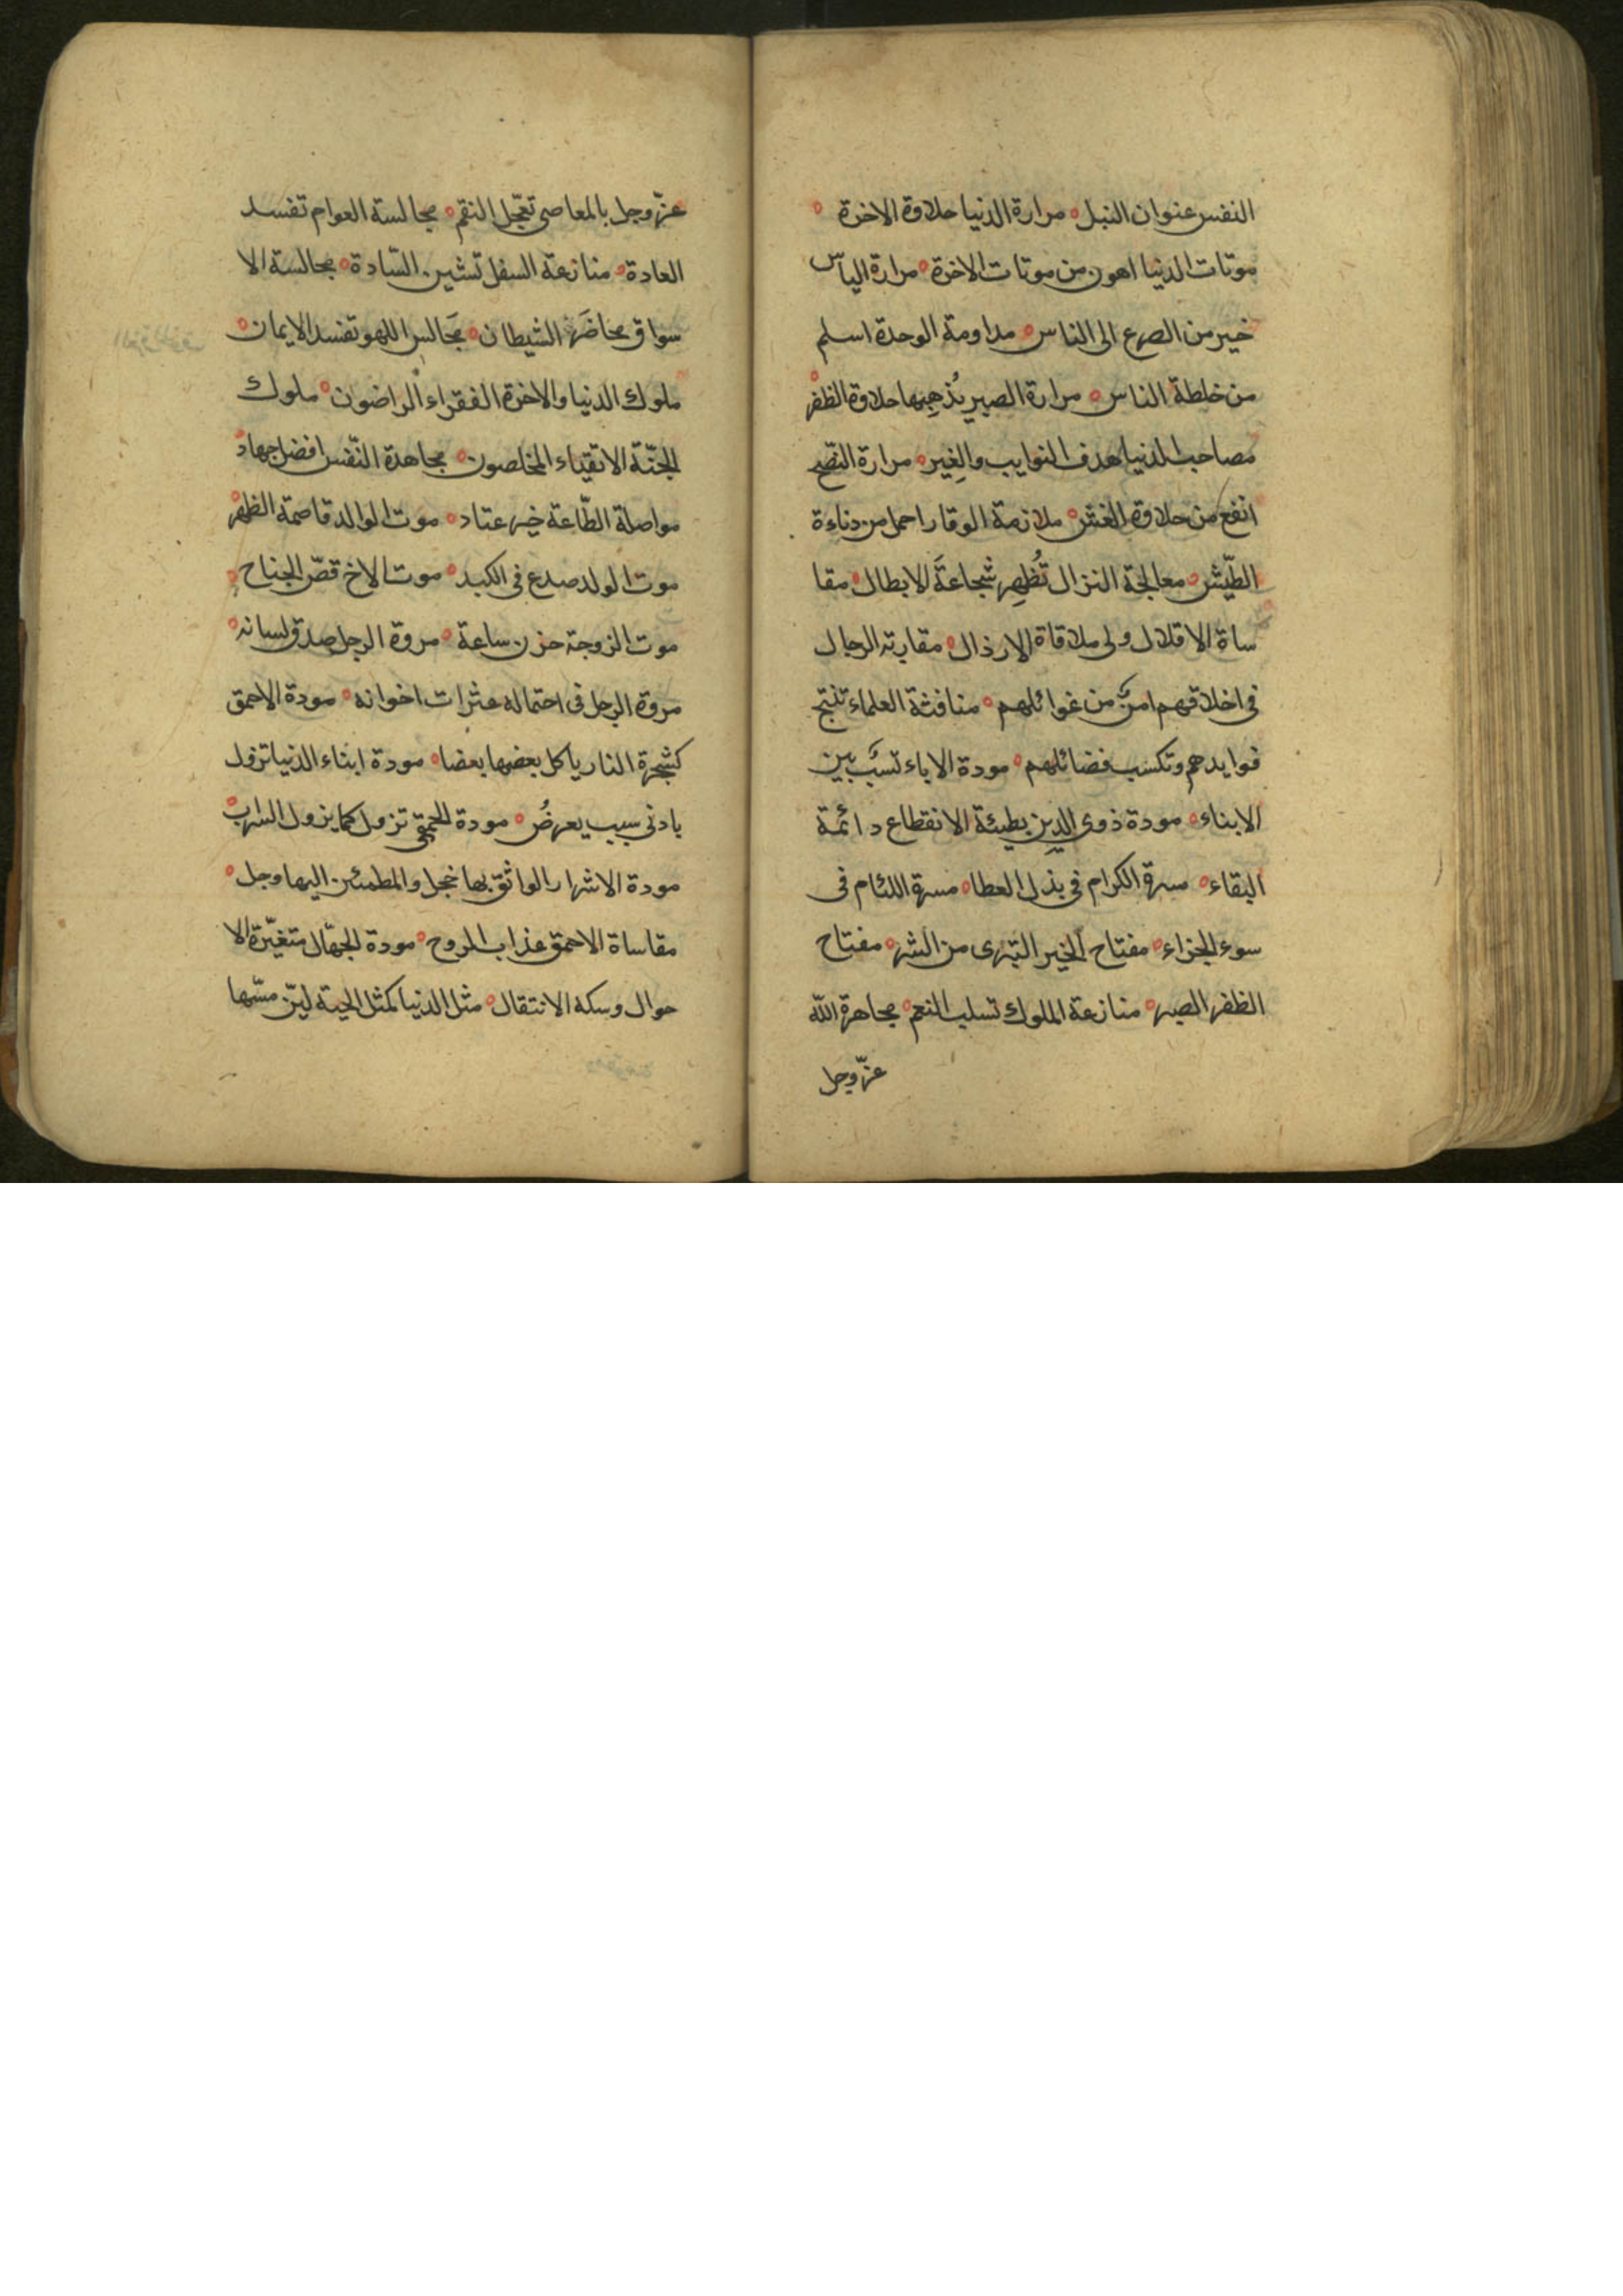 النفس عنوان النبل مرارة الدنيا حلاوة الاخرة
موتات الدنيا اهون من موتات الاخرة مرارة اليأس
خير من الصرع الى الناس مداومة الوحدة اسلم
من خلطة الناس مرارة الصبر يُذهِبها حلاوة الظفر
مصاحب الدنيا هدف النوايب والغِير مرارة النصح
انفع من حلاوة الغش ملازمة الوقار احمل من دناءة
الطّيش معالجة النزال تُظهِر شجاعةَ الابطال مقا
ساة الاقلال ولى ملاقاة الارذال مقاربة الرجال
فى اخلاقهم امنٌ من غوائلهم منافثة العلماء تنتج
فوايدهم وتكسب فضائلهم مودة الاباء نسبٌ بين
الابناء مودة ذوى الدين بطيئة الانقطاع دائمة
البقاء مسرة الكرام فى بذل العطا مسرة اللئام فى
سوء الجزاء مفتاح الخير التبرى من الشر مفتاح
الظفر الصبر منازعة الملوك تسلب النعم مجاهرة الله
عزّ وجل
عزّ وجل بالمعاصى تعجّل النقم مجالسة العوام تفسد
العادة منازعة السفل تشين السّادة مجالسة الا
سواق محاضر الشيطان مجَالس اللهو تفسد الايمان
ملوك الدنيا والاخرة الفقراء الراضون ملوك
الجنّة الاتقياء المخلصون مجاهدة النّفس افضل جهاد
مواصلة الطّاعة خير عتاد موت الوالد قاصمة الظهر
موت الولد صدع فى الكبد موت الاخ قصّ الجناح
موت الزوجة حزن ساعة مروة الرجل صدق لسانه
مروة الرجل فى احتماله عثرات اخوانه مودة الاحمق
كشجرة النار ياكل بعضها بعضا مودة ابناء الدنيا تزول
بادنى سبب يعرضُ مودة الحمقى تزول كما يزول السراب
مودة الاشرار الواثق بها خجل والمطمئن اليها وجل
مقاساة الاحمق عذاب الروح مودة الجهّال متغيّرة الا
حوال وسكة الانتقال مثل الدنيا كمثل الحية ليّن مسّها